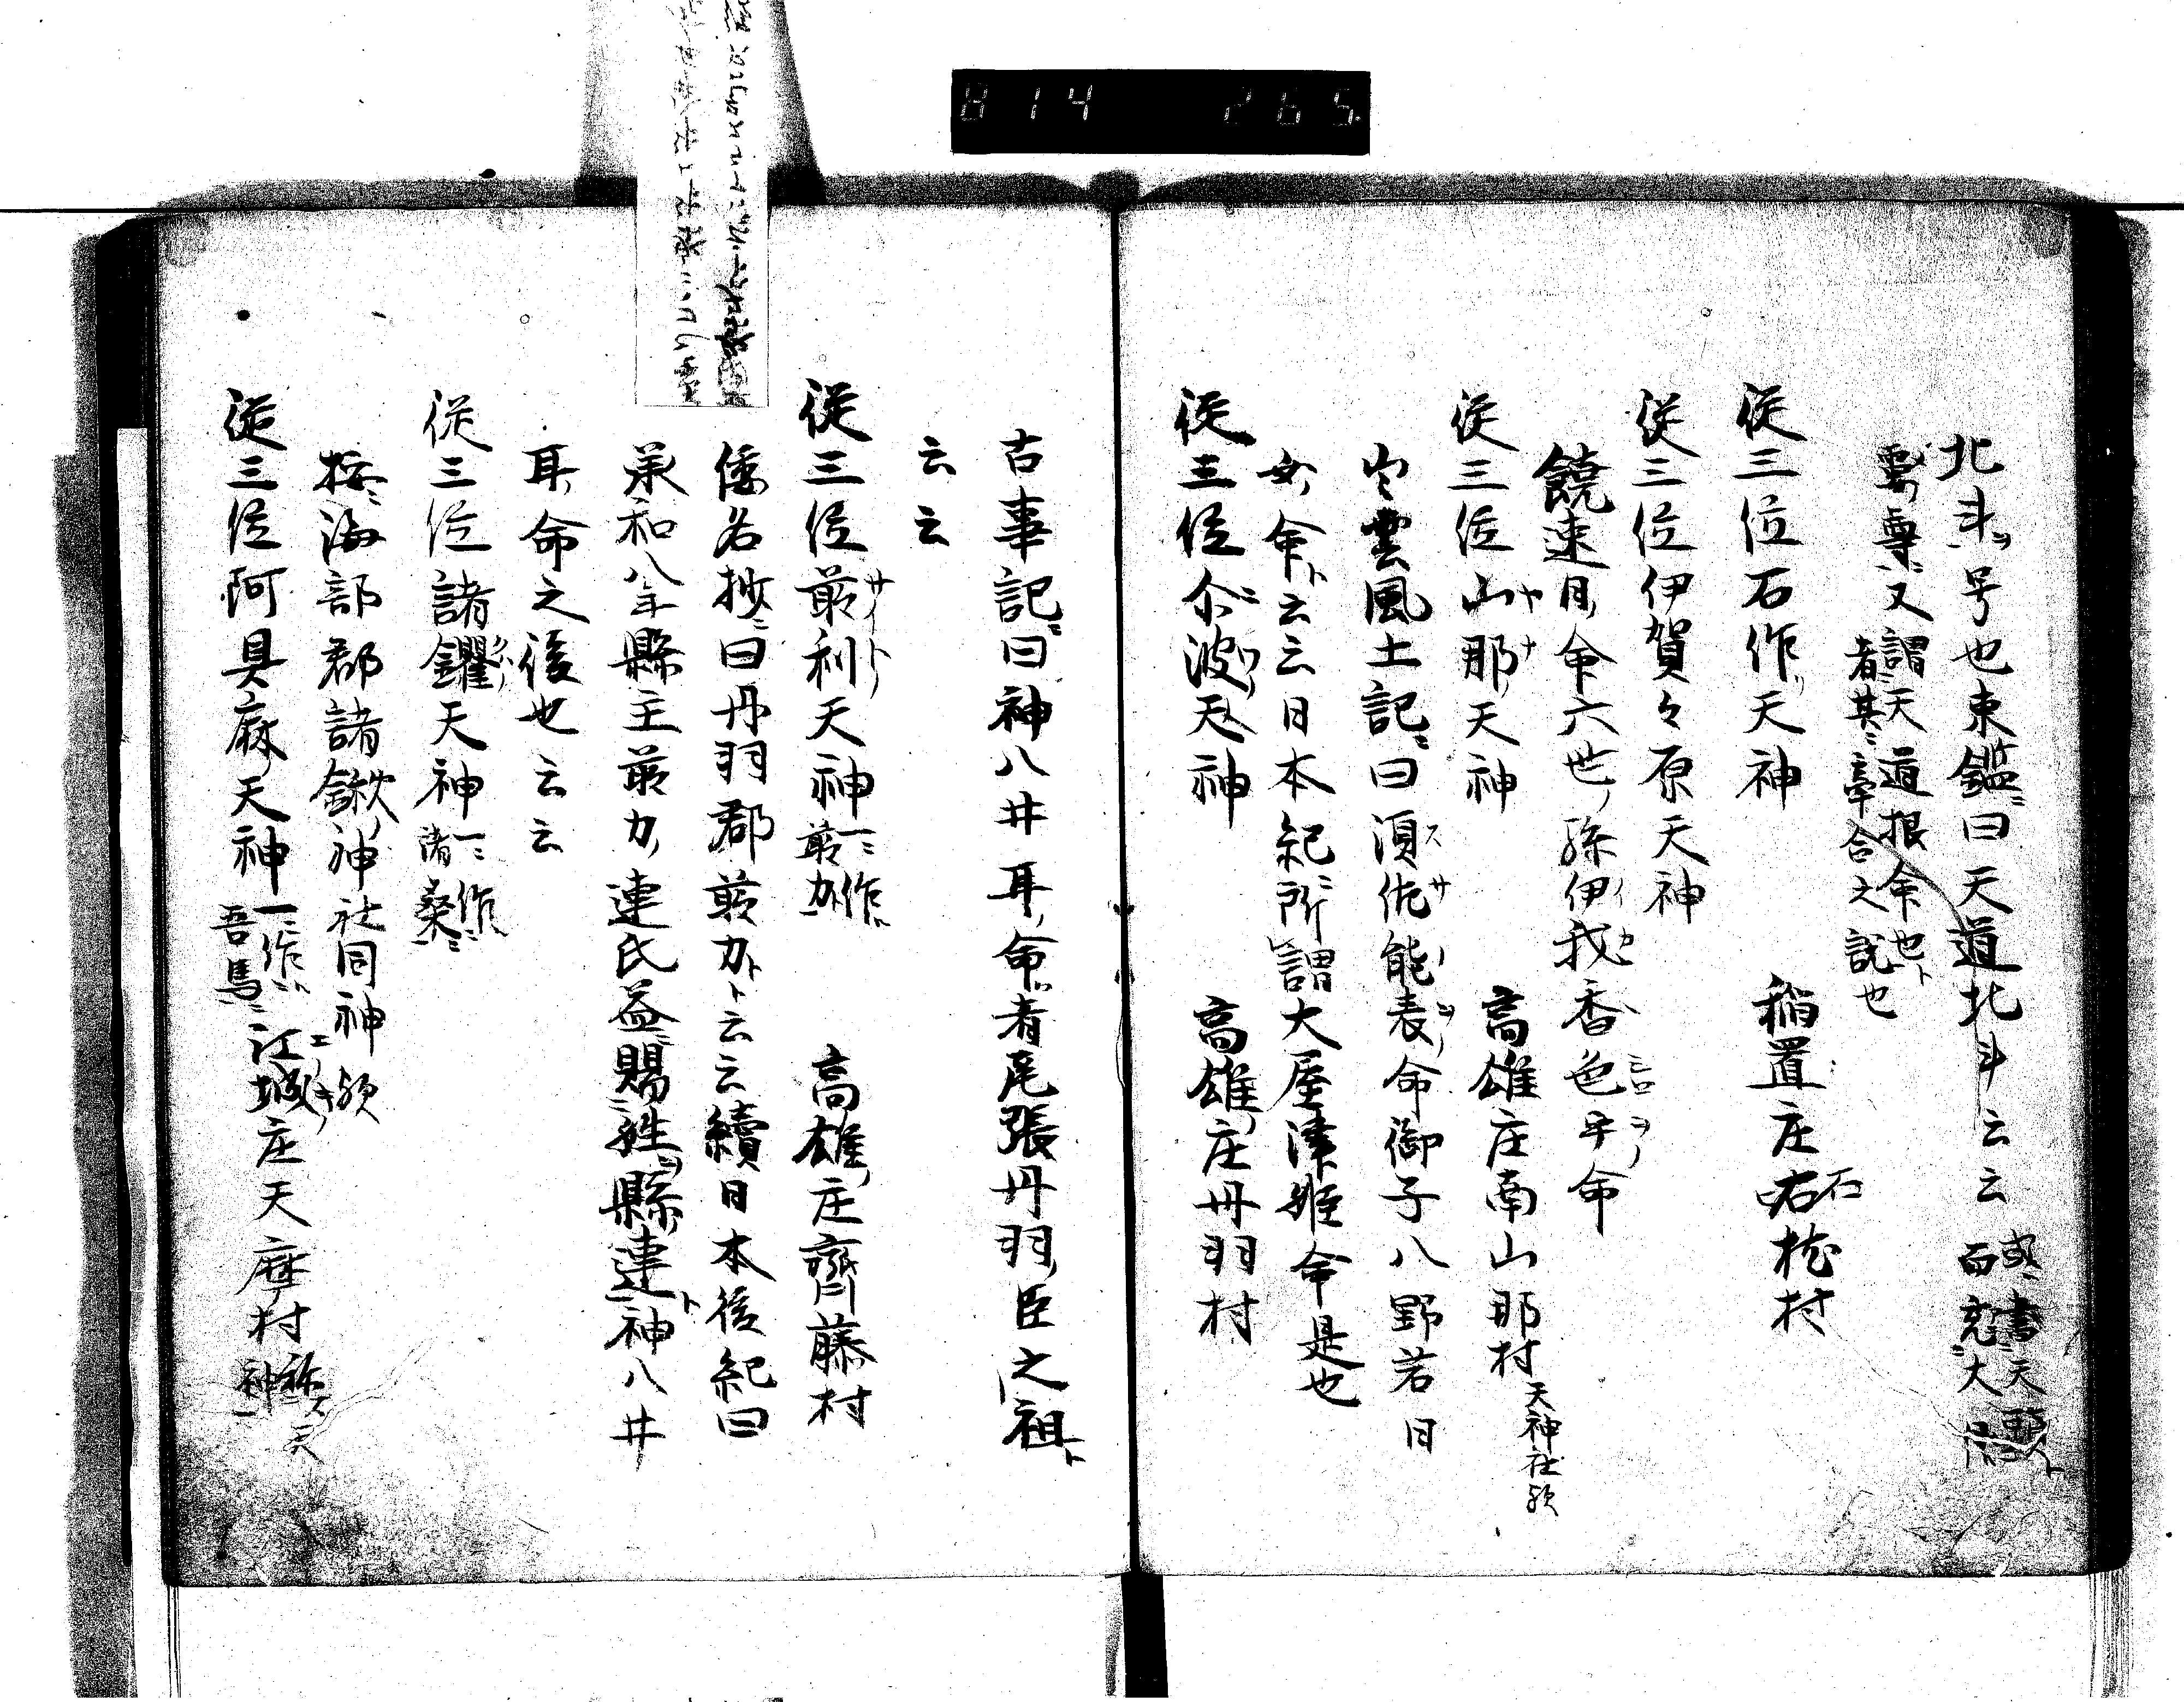 北斗号也東鑑曰天道北斗云云
或書天照
而充大
靈尊又謂天道根命也
者其牽合之説也
従三位石作天神 稲置庄石枕村
従三位伊賀々原天神
饒速日命六世孫伊我香色乎命
従三位山那天神 高雄庄南山那村天神社歟
出雲風土記曰須佐能表命御子八野若日
女命云云日本紀所謂大屋津姫命是也
従三位尓波天神 高雄庄丹羽村
古事記曰神八井耳命者尾張丹羽臣之祖
云云
従三位前利天神一作前力 高雄庄齊藤村
倭名抄曰丹羽郡前力云云續日本後紀曰
承和八年縣主前力連氏益賜姓縣連神八井
耳命之後也云云
従三位諸钁天神一作諸桑
按海部郡諸鍬神社同神歟
従三位阿具麻天神一作吾馬 江城庄天摩村称天神
814 265.